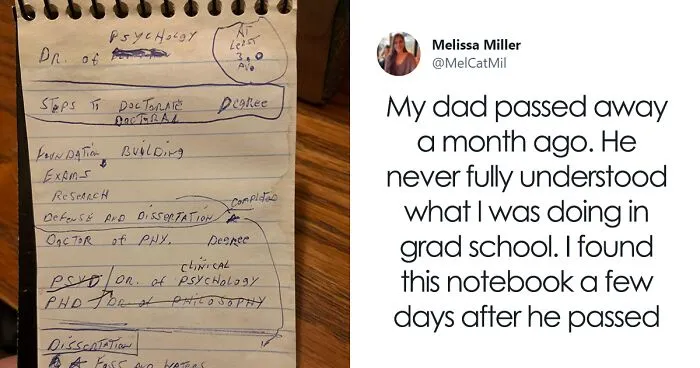 PSYCHOLOGY
DR. of
AT
LEAST
3.0
STEPS TO DOCTORATE DEGREE
DOCTORAL
FOUNDATION BUILDING
EXAMS
RESEARCH
DEFENSE AND DISSERTATION
COMPLETED
DOCTOR of PHY. DEGREE
CLINICAL
PSYD/DR. of PSYCHOLOGY
PHD/DR. of PHILOSOPHY
DISSERTATION
Melissa Miller
@MelCatMil
My dad passed away
a month ago. He
never fully understood
what I was doing in
grad school. I found
this notebook a few
days after he passed